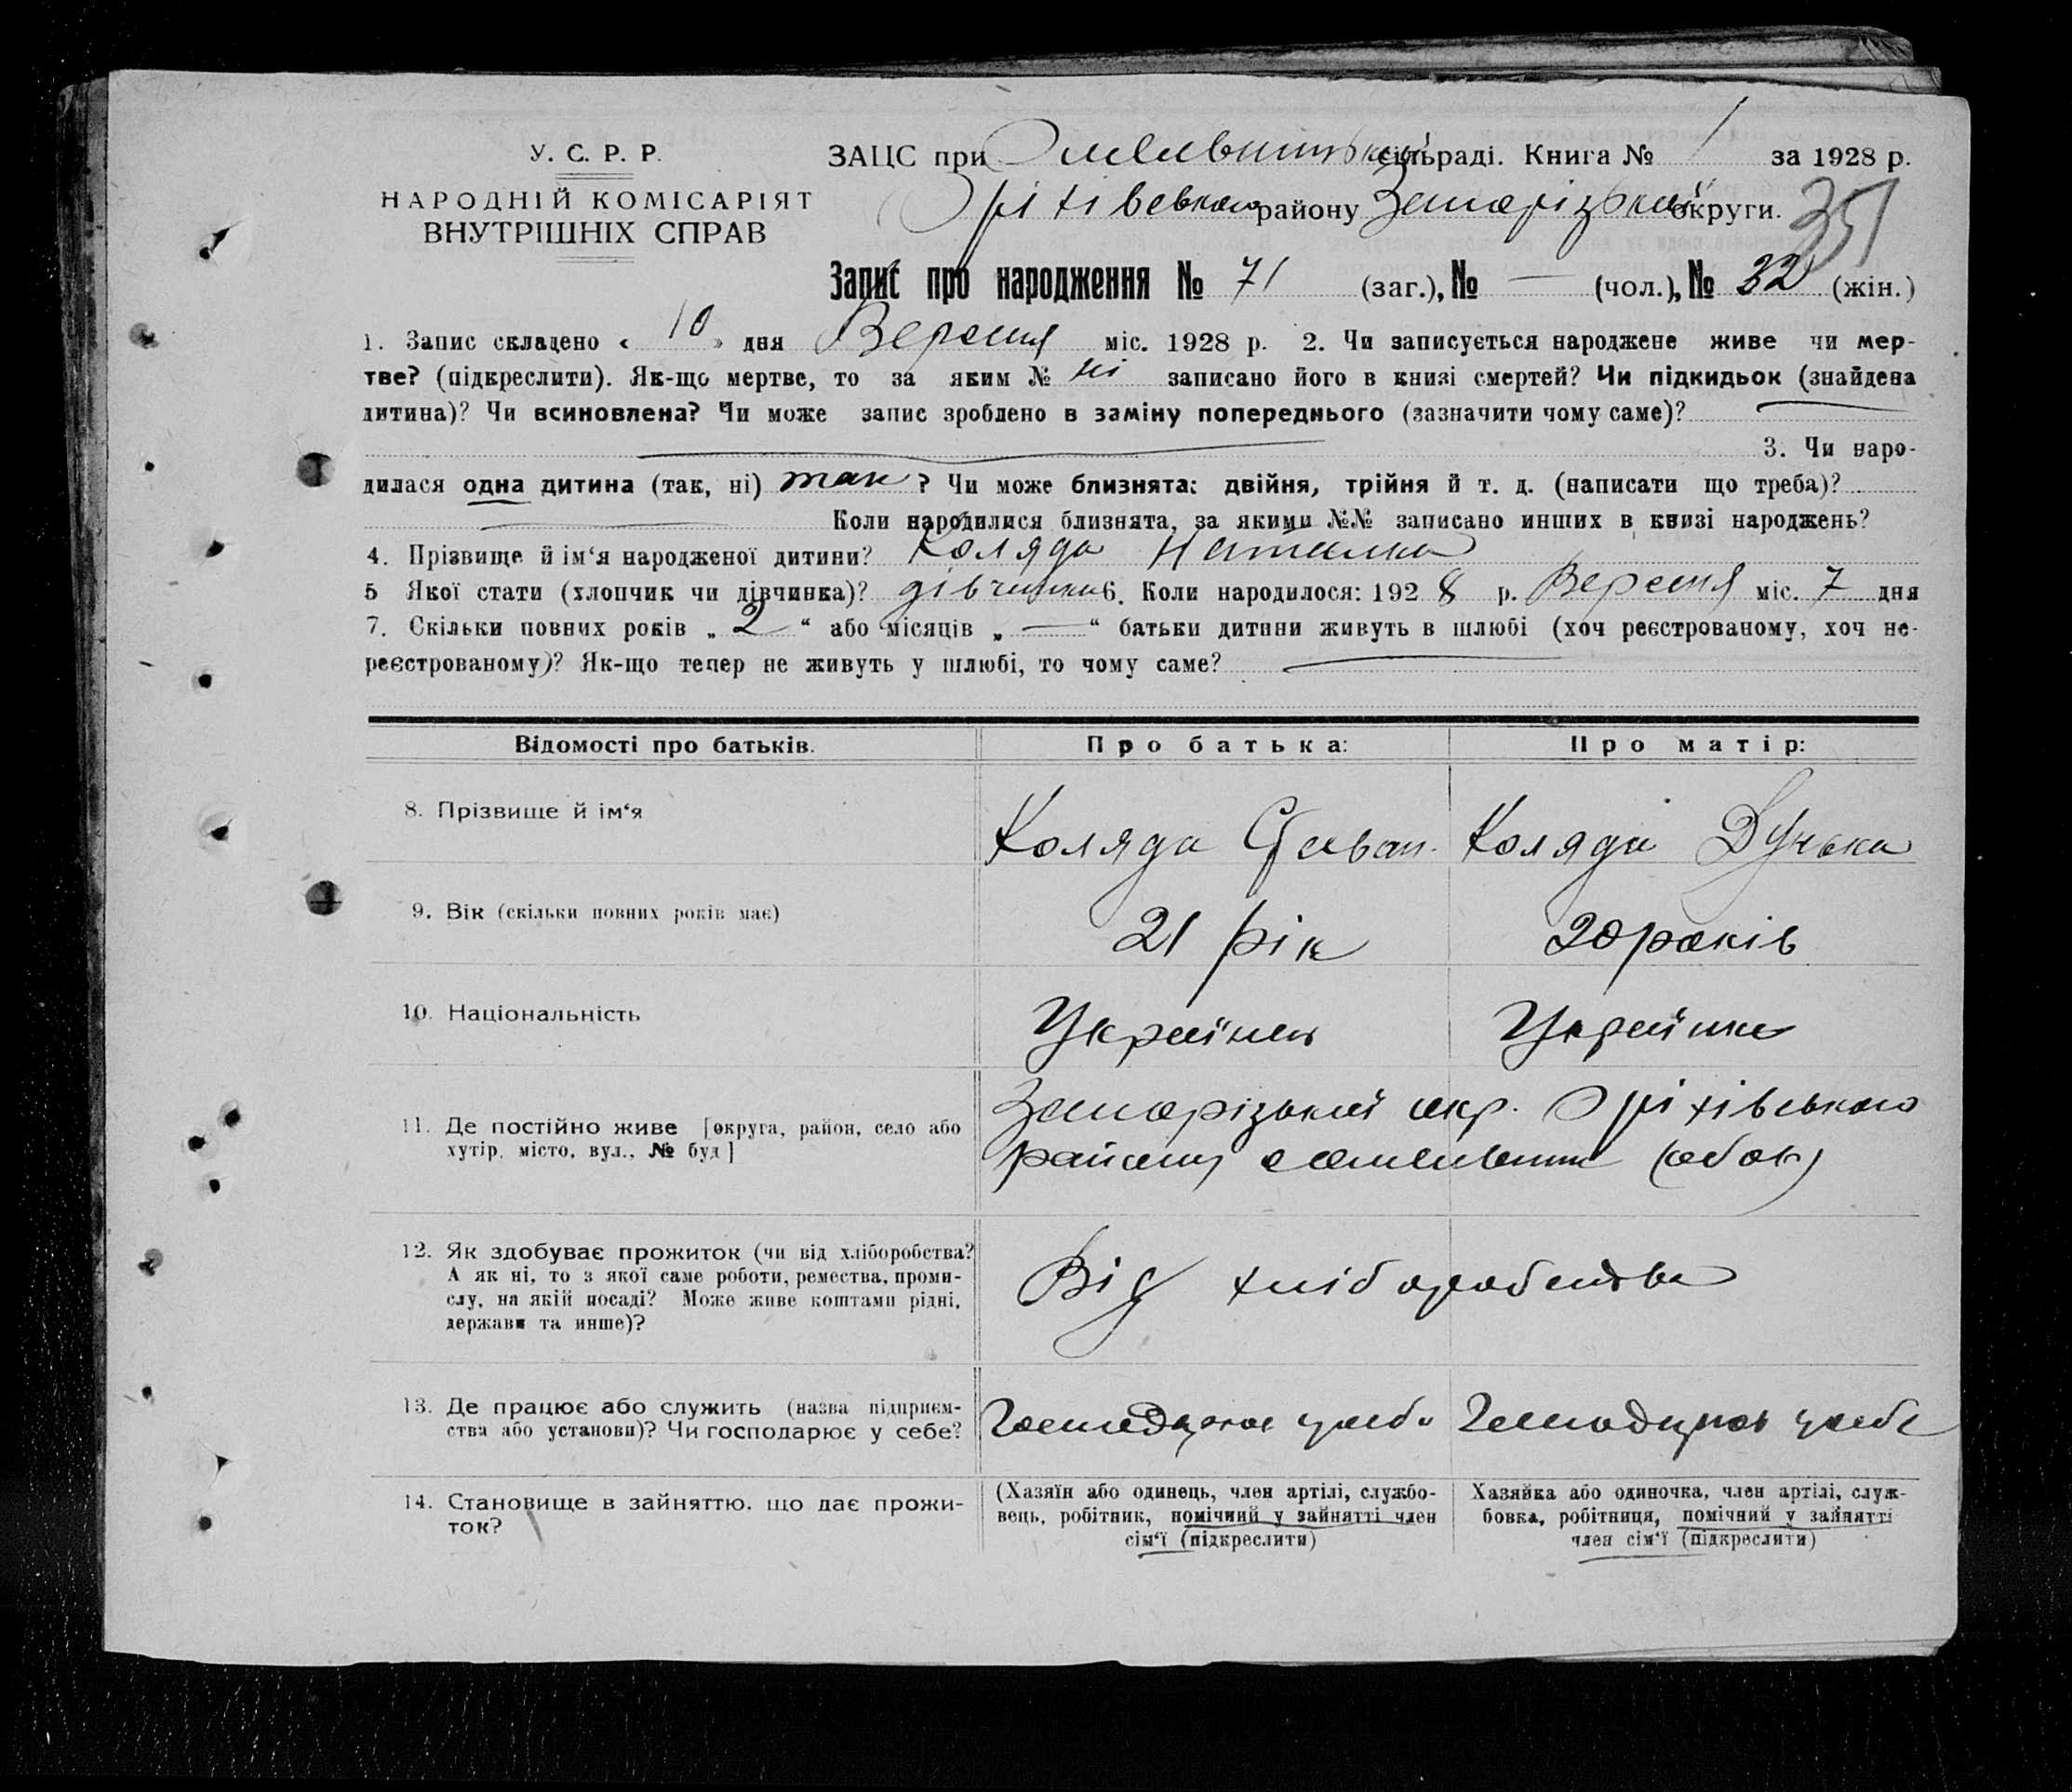 У. С. Р. Р.
НАРОДНІЙ КОМІСАРІЯТ
ВНУТРІШНІХ СПРАВ
ЗАЦС при Омельницькій сільраді. Книга № 1 за 1928 р.
Оріхівського району Запорізької округи.
351
Запис про народження № 71 (заг.), № — (чол.), № 32 (жін.)
1. Запис складено « 10 » дня Вересня міс. 1928 р. 2. Чи записується народжене живе чи мер-
тве? (підкреслити). Як-що мертве, то за яким № ні записано його в книзі смертей? Чи підкидьок (знайдена
дитина)? Чи всиновлена? Чи може запис зроблено в заміну попереднього (зазначити чому саме)?
3. Чи наро-
дилася одна дитина (так, ні) так ? Чи може близнята: двійня, трійня й т. д. (написати що треба)?
Коли народилися близнята, за якими №№ записано инших в книзі народжень?
4. Прізвище й ім‘я народженої дитини? Коляда Наталка
5 Якої стати (хлопчик чи дівчинка)? дівчинка 6. Коли народилося: 192 8 р. Вересня міс. 7 дня
7. Скільки повних років „ 2 “ або місяців „ — “ батьки дитини живуть в шлюбі (хоч реєстрованому, хоч не-
реєстрованому)? Як-що тепер не живуть у шлюбі, то чому саме?
Відомості про батьків. Про батька: Про матір:
8. Прізвище й ім‘я Коляда Коляда Дунька
9. Вік (скільки повних років має) 21 рік 20 років
10. Національність Українець Українка
11. Де постійно живе [округа, район, село або
хутір, місто, вул., № буд]
Запорізької окр. Оріхівського
району с Омельник (обоє)
12. Як здобуває прожиток (чи від хліборобства?
А як ні, то з якої саме роботи, ремества, проми-
слу, на якій посаді? Може живе коштами рідні,
держави та инше)?
Від хліборобства
13. Де працює або служить (назва підприєм-
ства або установи)? Чи господарює у себе?
Господарює у себе Господарює у себе
14. Становище в зайняттю, що дає прожи-
ток?
(Хазяїн або одинець, член артілі, службо-
вець, робітник, помічний у зайнятті член
сім‘ї (підкреслити)
Хазяйка або одиночка, член артілі, служ-
бовка, робітниця, помічний у зайнятті
член сім‘ї (підкреслити)